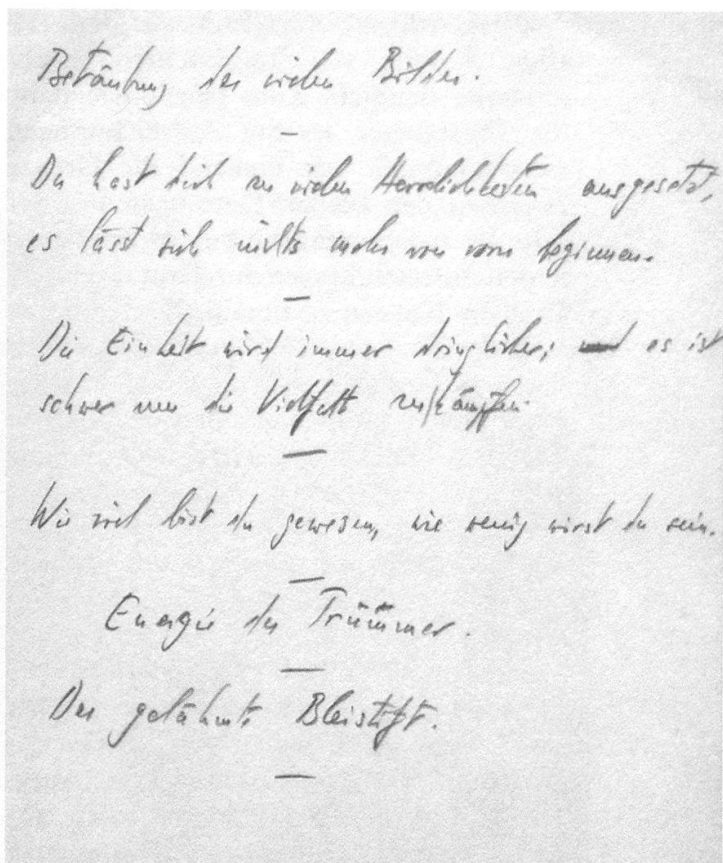 Betäubung der vielen Bilder.
—
Du hast dich zu vielen Herrlichkeiten ausgesetzt,
es lässt sich nichts mehr von vorn beginnen.
—
Die Einheit wird immer dringlicher; und es ist
schwer um die Vielfalt zu kämpfen.
—
Wie viel bist du gewesen, wie wenig wirst du sein.
—
Energie der Trümmer.
—
Der gelähmte Bleistift.
—